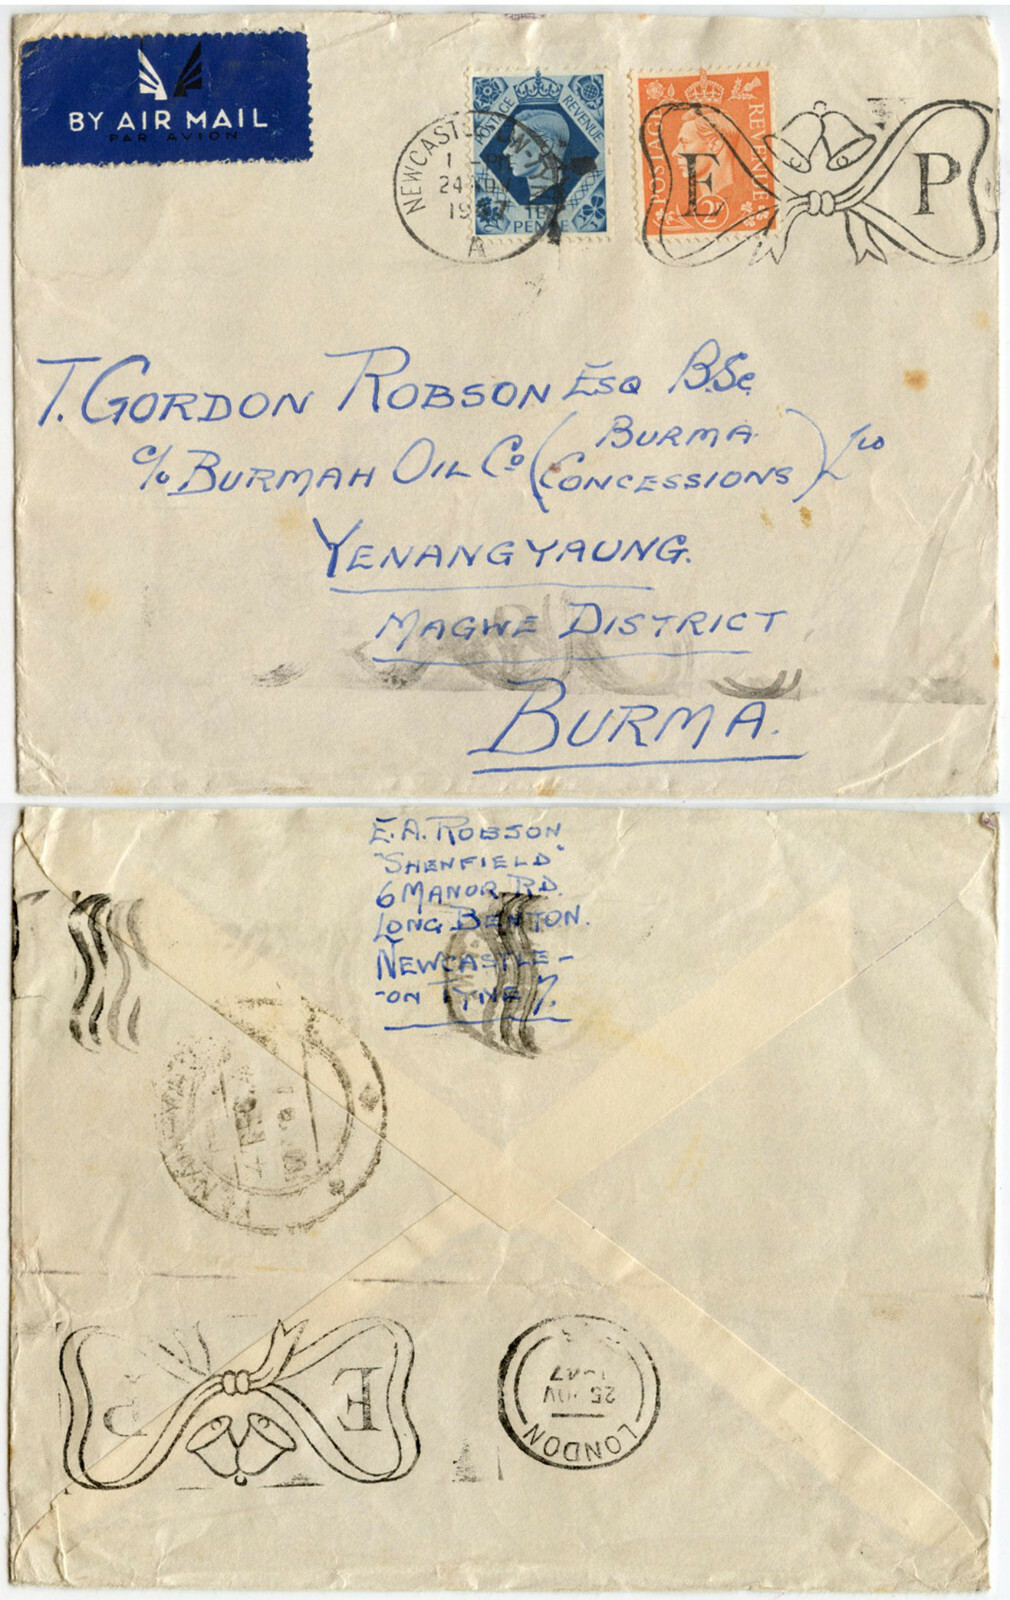 BY AIR MAIL
PAR AVION
POSTAGE REVENUE
TEN
PENCE
POSTAGE REVENUE
2D
NEWCASTLE
24 NOV
1947
A
E P
T. GORDON ROBSON ESQ B.Sc.
c/o BURMAH OIL Co (BURMA
CONCESSIONS) LTD
YENANGYAUNG.
MAGWE DISTRICT
BURMA.
E. A. ROBSON
"SHENFIELD"
6 MANOR RD.
LONG BENTON.
NEWCASTLE-
-ON TYNE 7.
E P
LONDON
25 NOV
47